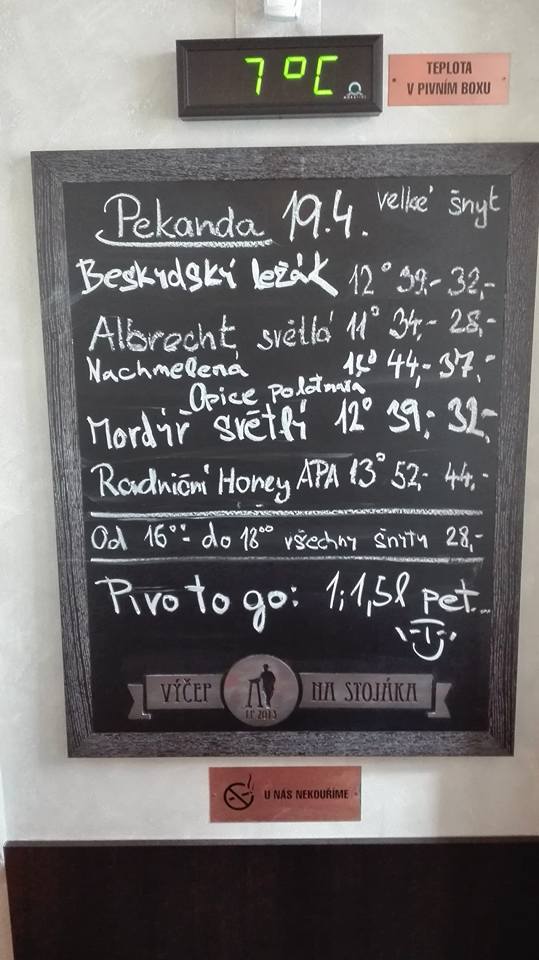 7°C
TEPLOTA
V PIVNÍM BOXU
Pekanda 19.4. velké šnyt
Beskydský ležák 12° 39,- 32,-
Albrecht světlá 11° 34,- 28,-
Nachmelená 44,- 37,-
Opice polotmavá
Mordýř světlý 12° 39,- 32,-
Radniční Honey APA 13° 52,- 44,-
Od 16°°- do 18°° všechny šnyty 28,-
Pivo to go: 1;1,5l pet...
VÝČEP NA STOJÁKA
LP 2013
U NÁS NEKOUŘÍME